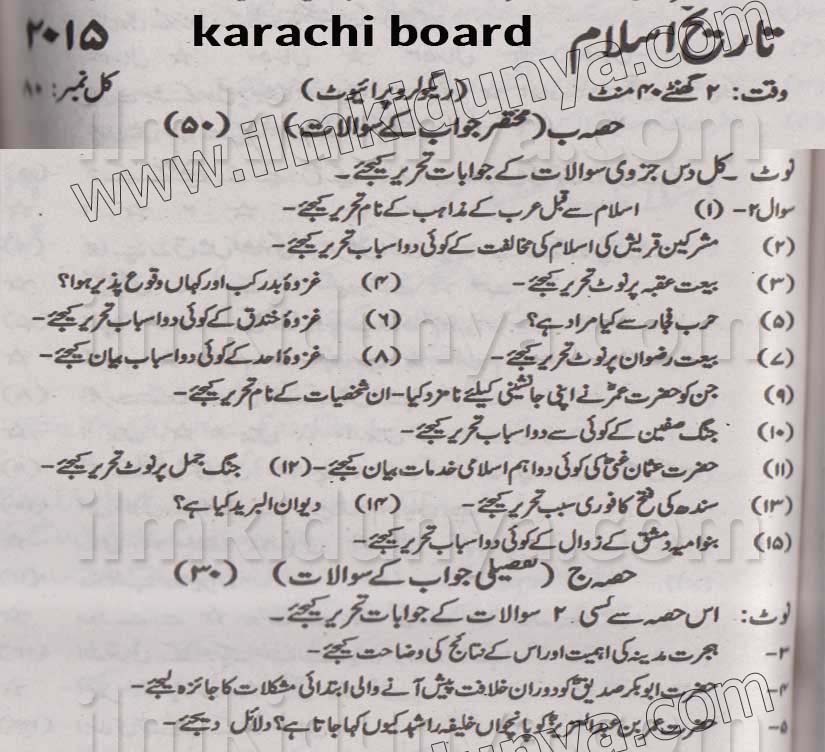 تاریخ اسلام karachi board ۲۰۱۵
وقت: ۲ گھنٹے ۴۰ منٹ (ریگولر و پرائیوٹ) کل نمبر: ۸۰
حصہ ب (مختصر جواب کے سوالات) (۵۰)
نوٹ ۔ کل دس جزوی سوالات کے جوابات تحریر کیجئے۔
سوال ۲- (۱) اسلام سے قبل عرب کے مذاہب کے نام تحریر کیجئے-
(۲) مشرکین قریش کی اسلام کی مخالفت کے کوئی دو اسباب تحریر کیجئے-
(۳) بیعت عقبہ پر نوٹ تحریر کیجئے- (۴) غزوۂ بدر کب اور کہاں وقوع پذیر ہوا؟
(۵) حرب فجار سے کیا مراد ہے؟ (۶) غزوۂ خندق کے کوئی دو اسباب تحریر کیجئے-
(۷) بیعت رضوان پر نوٹ تحریر کیجئے- (۸) غزوۂ احد کے کوئی دو اسباب بیان کیجئے-
(۹) جن کو حضرت عمرؓ نے اپنی جانشینی کیلئے نامزد کیا- ان شخصیات کے نام تحریر کیجئے-
(۱۰) جنگ صفین کے کوئی سے دو اسباب تحریر کیجئے-
(۱۱) حضرت عثمان غنیؓ کی کوئی دو اہم اسلامی خدمات بیان کیجئے- (۱۲) جنگ جمل پر نوٹ تحریر کیجئے-
(۱۳) سندھ کی فتح کا فوری سبب تحریر کیجئے- (۱۴) دیوان البرید کیا ہے؟
(۱۵) بنوامیہ دمشق کے زوال کے کوئی دو اسباب تحریر کیجئے-
حصہ ج (تفصیلی جواب کے سوالات) (۳۰)
نوٹ: اس حصہ سے کسی ۲ سوالات کے جوابات تحریر کیجئے۔
۳- ہجرت مدینہ کی اہمیت اور اس کے نتائج کی وضاحت کیجئے-
۴- حضرت ابوبکر صدیقؓ کو دوران خلافت پیش آنے والی ابتدائی مشکلات کا جائزہ لیجئے-
۵- حضرت عمر بن عبدالعزیزؒ کو پانچواں خلیفہ راشد کیوں کہا جاتا ہے؟ دلائل دیجئے-
www.ilmkidunya.com
ilmkidunya.com
ilmkidunya.com
ilmkidunya.com
www.ilmkidunya.com